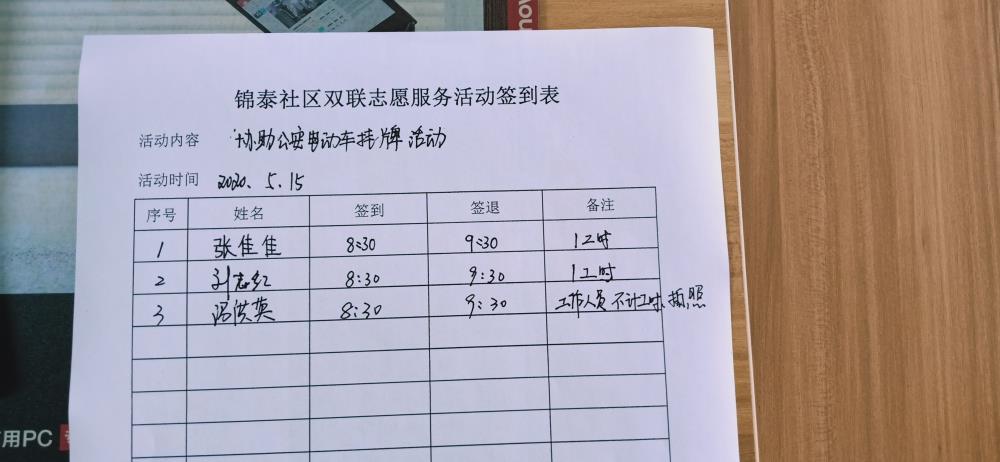 锦泰社区双联志愿服务活动签到表
活动内容 协助公安电动车挂牌活动
活动时间 2020.5.15
序号 姓名 签到 签退 备注
1 张佳佳 8:30 9:30 1工时
2 刘志红 8:30 9:30 1工时
3 冯洪英 8:30 9:30 工作人员不计工时、拍照
用PC